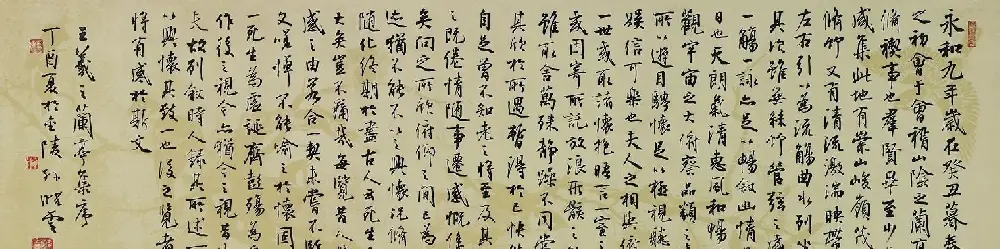 永和九年歲在癸丑暮春
之初會于會稽山陰之蘭亭
脩禊事也群賢畢至少
咸集此地有崇山峻領茂
脩竹又有清流激湍映帶
左右引以為流觴曲水列坐
其次雖無絲竹管弦之盛
一觴一詠亦足以暢敘幽情
日也天朗氣清惠風和暢
觀宇宙之大俯察品類
所以遊目騁懷足以極視聽
娛信可樂也夫人之相與俯
一世或取諸懷抱晤言一室之
或因寄所託放浪形骸
雖取舍萬殊靜躁不同當
其欣於所遇暫得於己快然
自足曾不知老之將至及其
之既倦情隨事遷感慨係
矣向之所欣俯仰之間已為
迹猶不能不以之興懷況脩
隨化終期於盡古人云死生
大矣豈不痛哉每覽昔人
感之由若合一契未嘗不臨
文嗟悼不能喻之於懷固
一死生為虛誕齊彭殤為
作後之視今亦猶今之視昔
夫故列敘時人錄其所述
以興懷其致一也後之覽者
將有感於斯文
王羲之蘭亭集序
丁酉夏於金陵孫曉雲